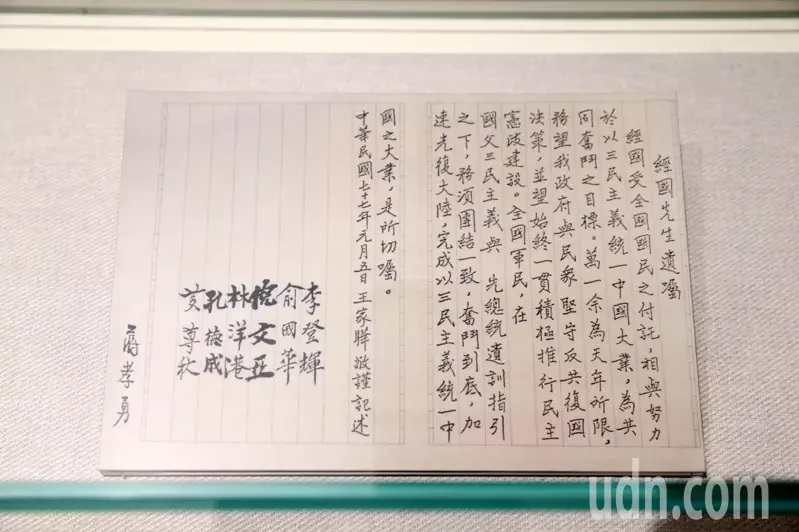 經國先生遺囑
經國受全國國民之付託，相與努力
於以三民主義統一中國大業，為共
同奮鬥之目標。萬一余為天年所限，
務望我政府與民衆堅守反共復國
決策，並望始終一貫積極推行民主
憲政建設。全國軍民，在
國父三民主義與　先總統遺訓指引
之下，務須團結一致，奮鬥到底，加
速光復大陸，完成以三民主義統一中
國之大業，是所切囑。
中華民國七十七年元月五日 王家驊敬謹記述
李登輝
俞國華
倪文亞
林洋港
孔德成
黃尊秋
蔣孝勇
udn.com